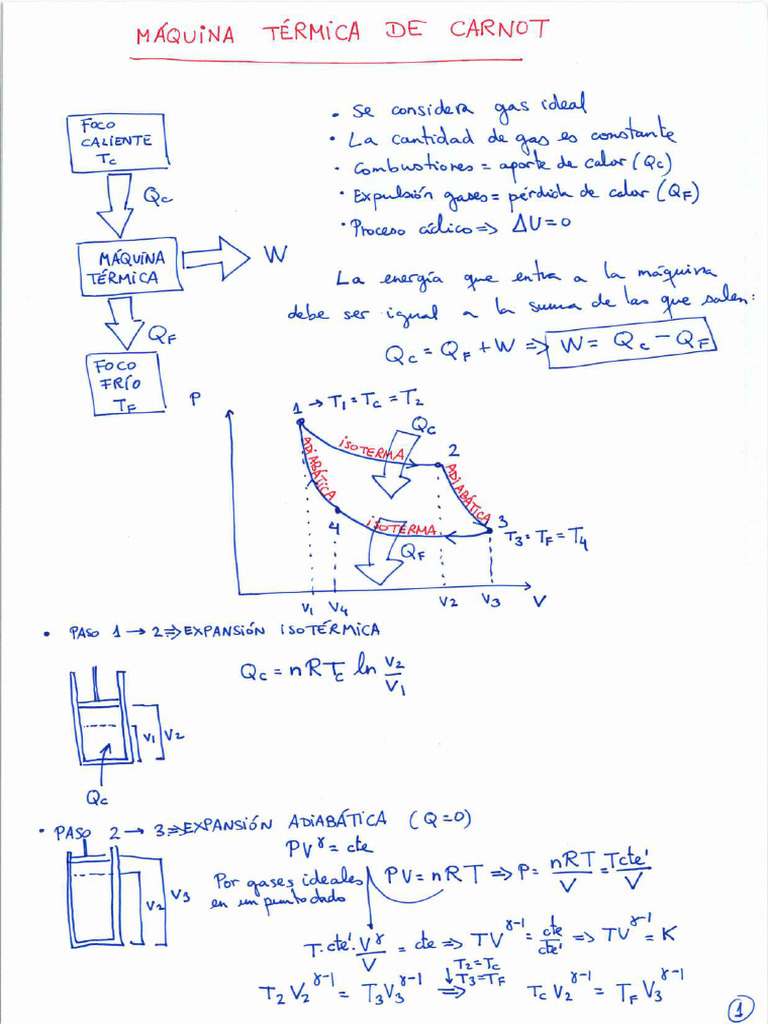 MÁQUINA TÉRMICA DE CARNOT
FOCO
CALIENTE
T_C
Q_C
MÁQUINA
TÉRMICA
W
Q_F
FOCO
FRÍO
T_F
• Se considera gas ideal
• La cantidad de gas es constante
• Combustiones = aporte de calor (Q_C)
• Expulsión gases = pérdida de calor (Q_F)
• Proceso cíclico => ΔU = 0
La energía que entra a la máquina
debe ser igual a la suma de las que salen:
Q_C = Q_F + W => W = Q_C - Q_F
P
1 → T_1 = T_C = T_2
Q_C
ISOTERMA
2
ADIABÁTICA
ADIABÁTICA
4
ISOTERMA
3
T_3 = T_F = T_4
Q_F
V_1 V_4 V_2 V_3 V
• PASO 1 → 2 => EXPANSIÓN ISOTÉRMICA
Q_C = nRT_C ln V_2/V_1
V_1 V_2
Q_C
• PASO 2 → 3 => EXPANSIÓN ADIABÁTICA (Q=0)
PV^γ = cte
V_2 V_3
Por gases ideales
en un punto dado
PV = nRT => P = nRT/V = Tcte'/V
T·cte'·V^γ/V = cte => TV^γ-1 = cte/cte' => TV^γ-1 = K
T_2 V_2^γ-1 = T_3 V_3^γ-1 => T_C V_2^γ-1 = T_F V_3^γ-1
T_2 = T_C
T_3 = T_F
1